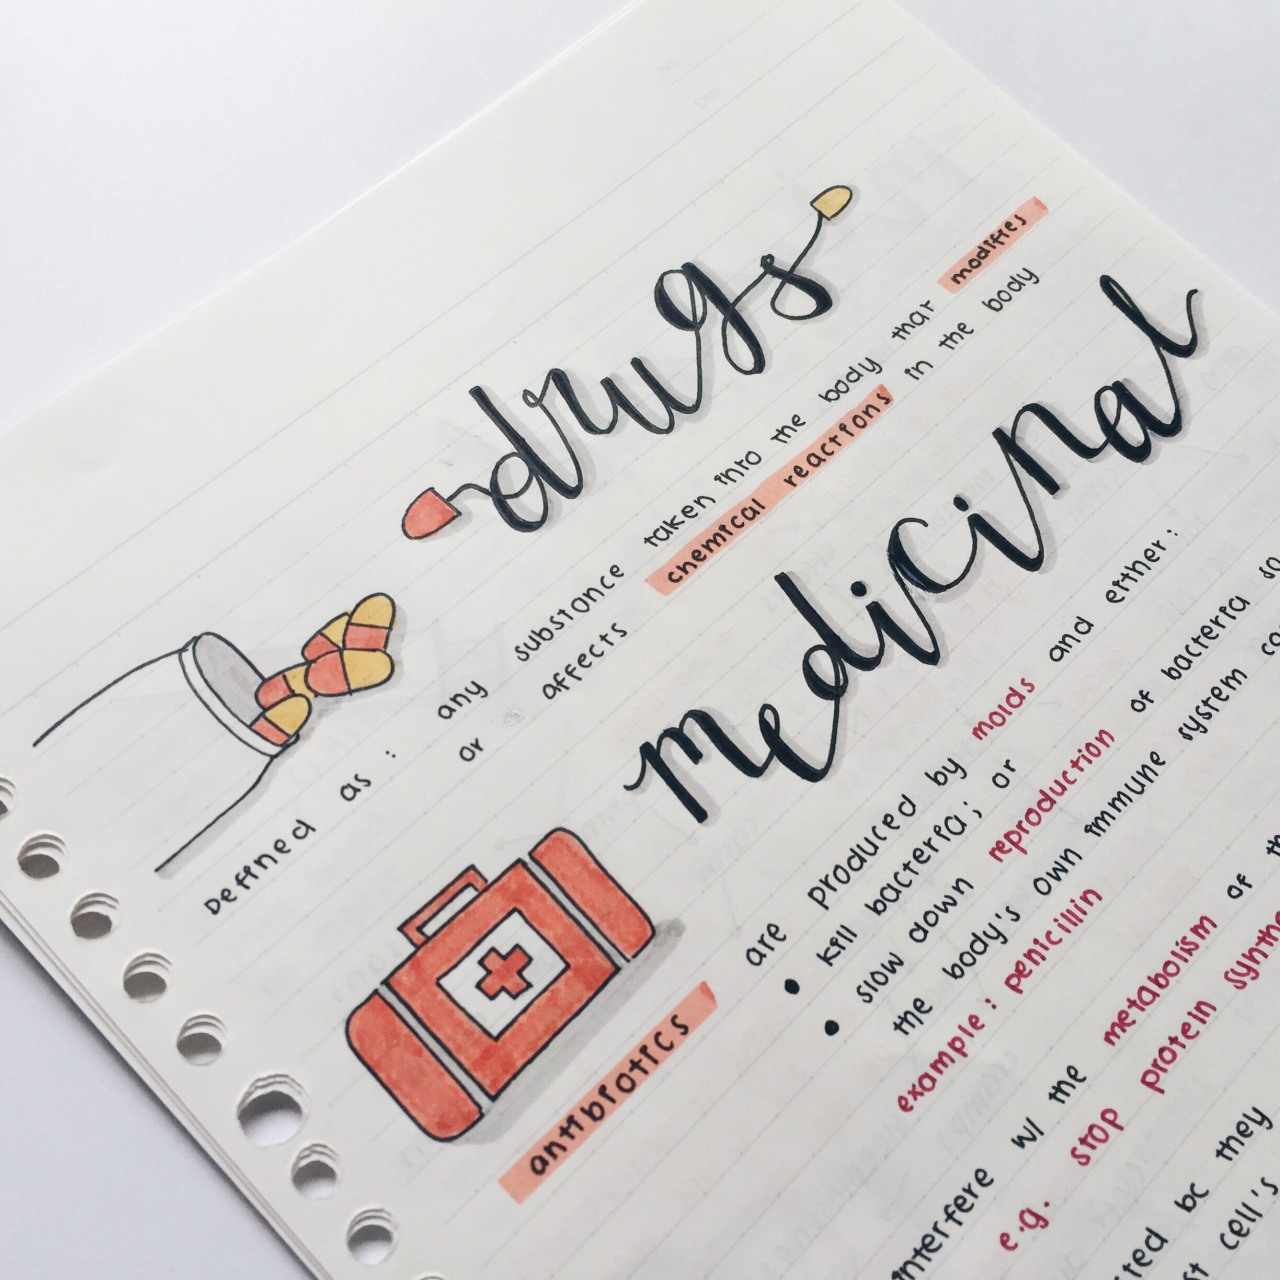 drugs
Defined as : any substance taken into the body that modifies
or affects chemical reactions in the body
medicinal
antibiotics are produced by molds and either :
• kill bacteria; or
• slow down reproduction of bacteria so
the body's own immune system
example : penicillin
interfere w/ the metabolism of
e.g. stop protein
bc they
cell's